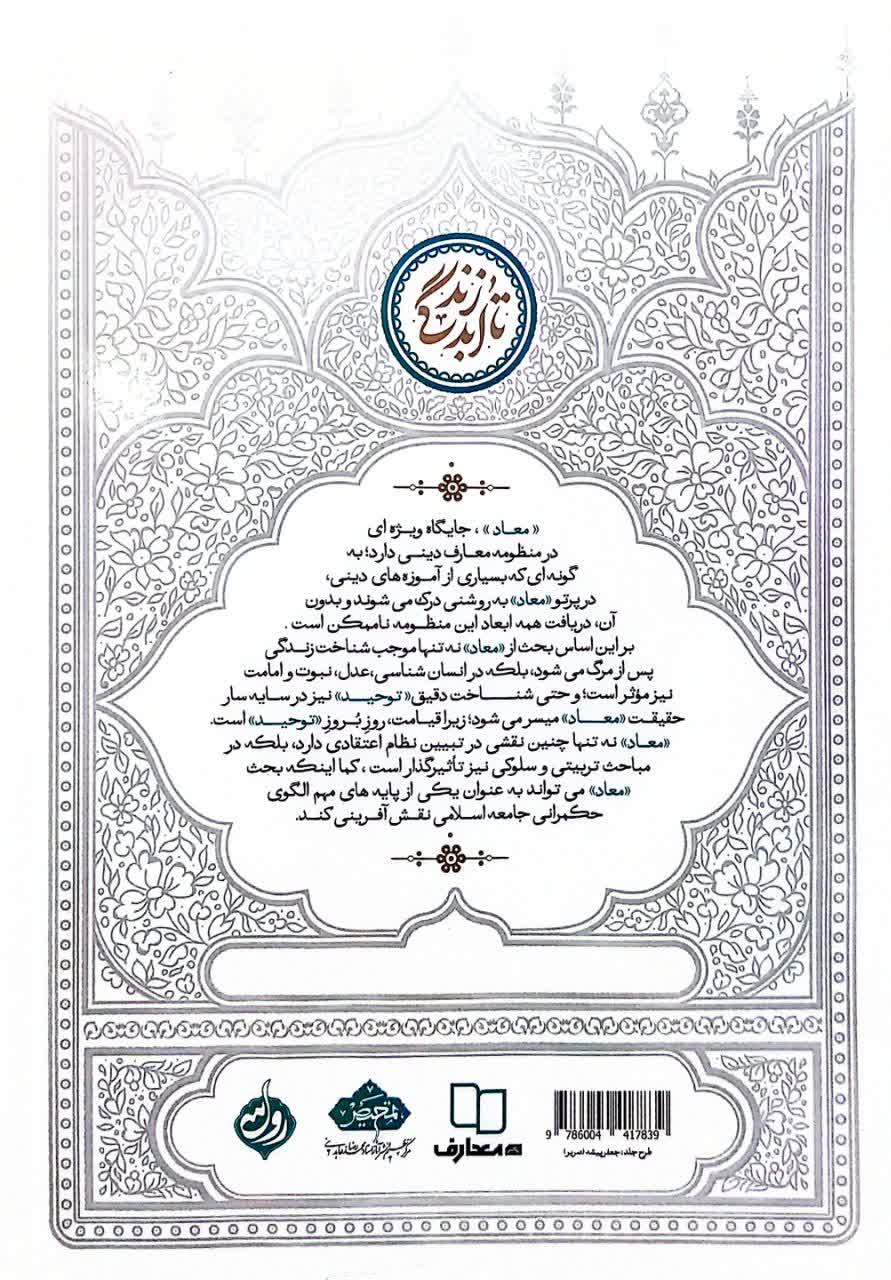 زندگی
تا ابد
« معاد » ، جایگاه ویژه ای
در منظومه معارف دینی دارد؛ به
گونه ای که بسیاری از آموزه های دینی،
در پرتو «معاد» به روشنی درک می شوند و بدون
آن، دریافت همه ابعاد این منظومه ناممکن است .
بر این اساس بحث از «معاد» نه تنها موجب شناخت زندگی
پس از مرگ می شود، بلکه در انسان شناسی، عدل، نبوت و امامت
نیز مؤثر است؛ و حتی شناخت دقیق « توحید » نیز در سایه سار
حقیقت «معاد» میسر می شود؛ زیرا قیامت، روزِ بُروزِ «توحید» است.
«معاد» نه تنها چنین نقشی در تبیین نظام اعتقادی دارد، بلکه در
مباحث تربیتی و سلوکی نیز تأثیرگذار است ، کما اینکه بحث
«معاد» می تواند به عنوان یکی از پایه های مهم الگوی
حکمرانی جامعه اسلامی نقش آفرینی کند.
معارف
9 786004 417839
طرح جلد: جعفر پیشه (صریر)